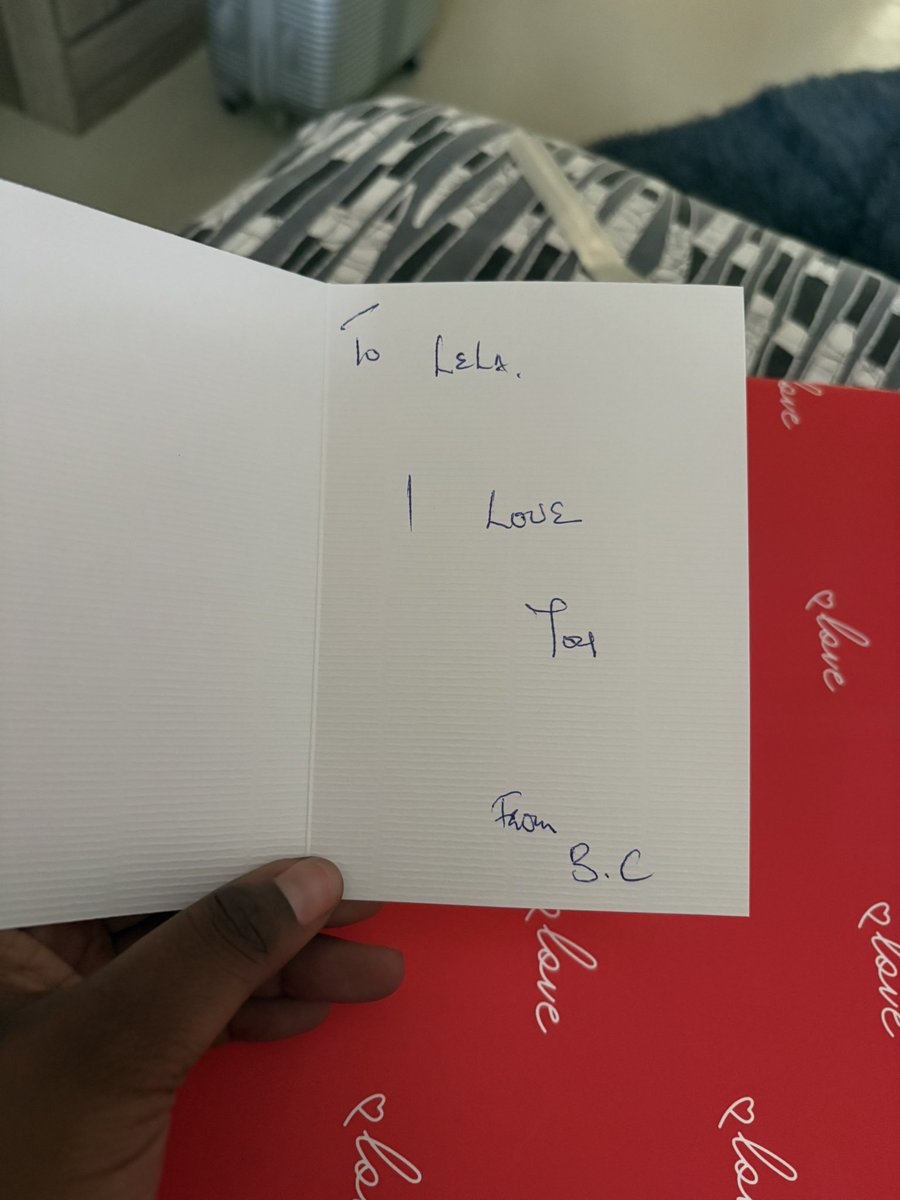 To LELA.
I LOVE
You
From
B.C
love
love
love
love
lo
lo